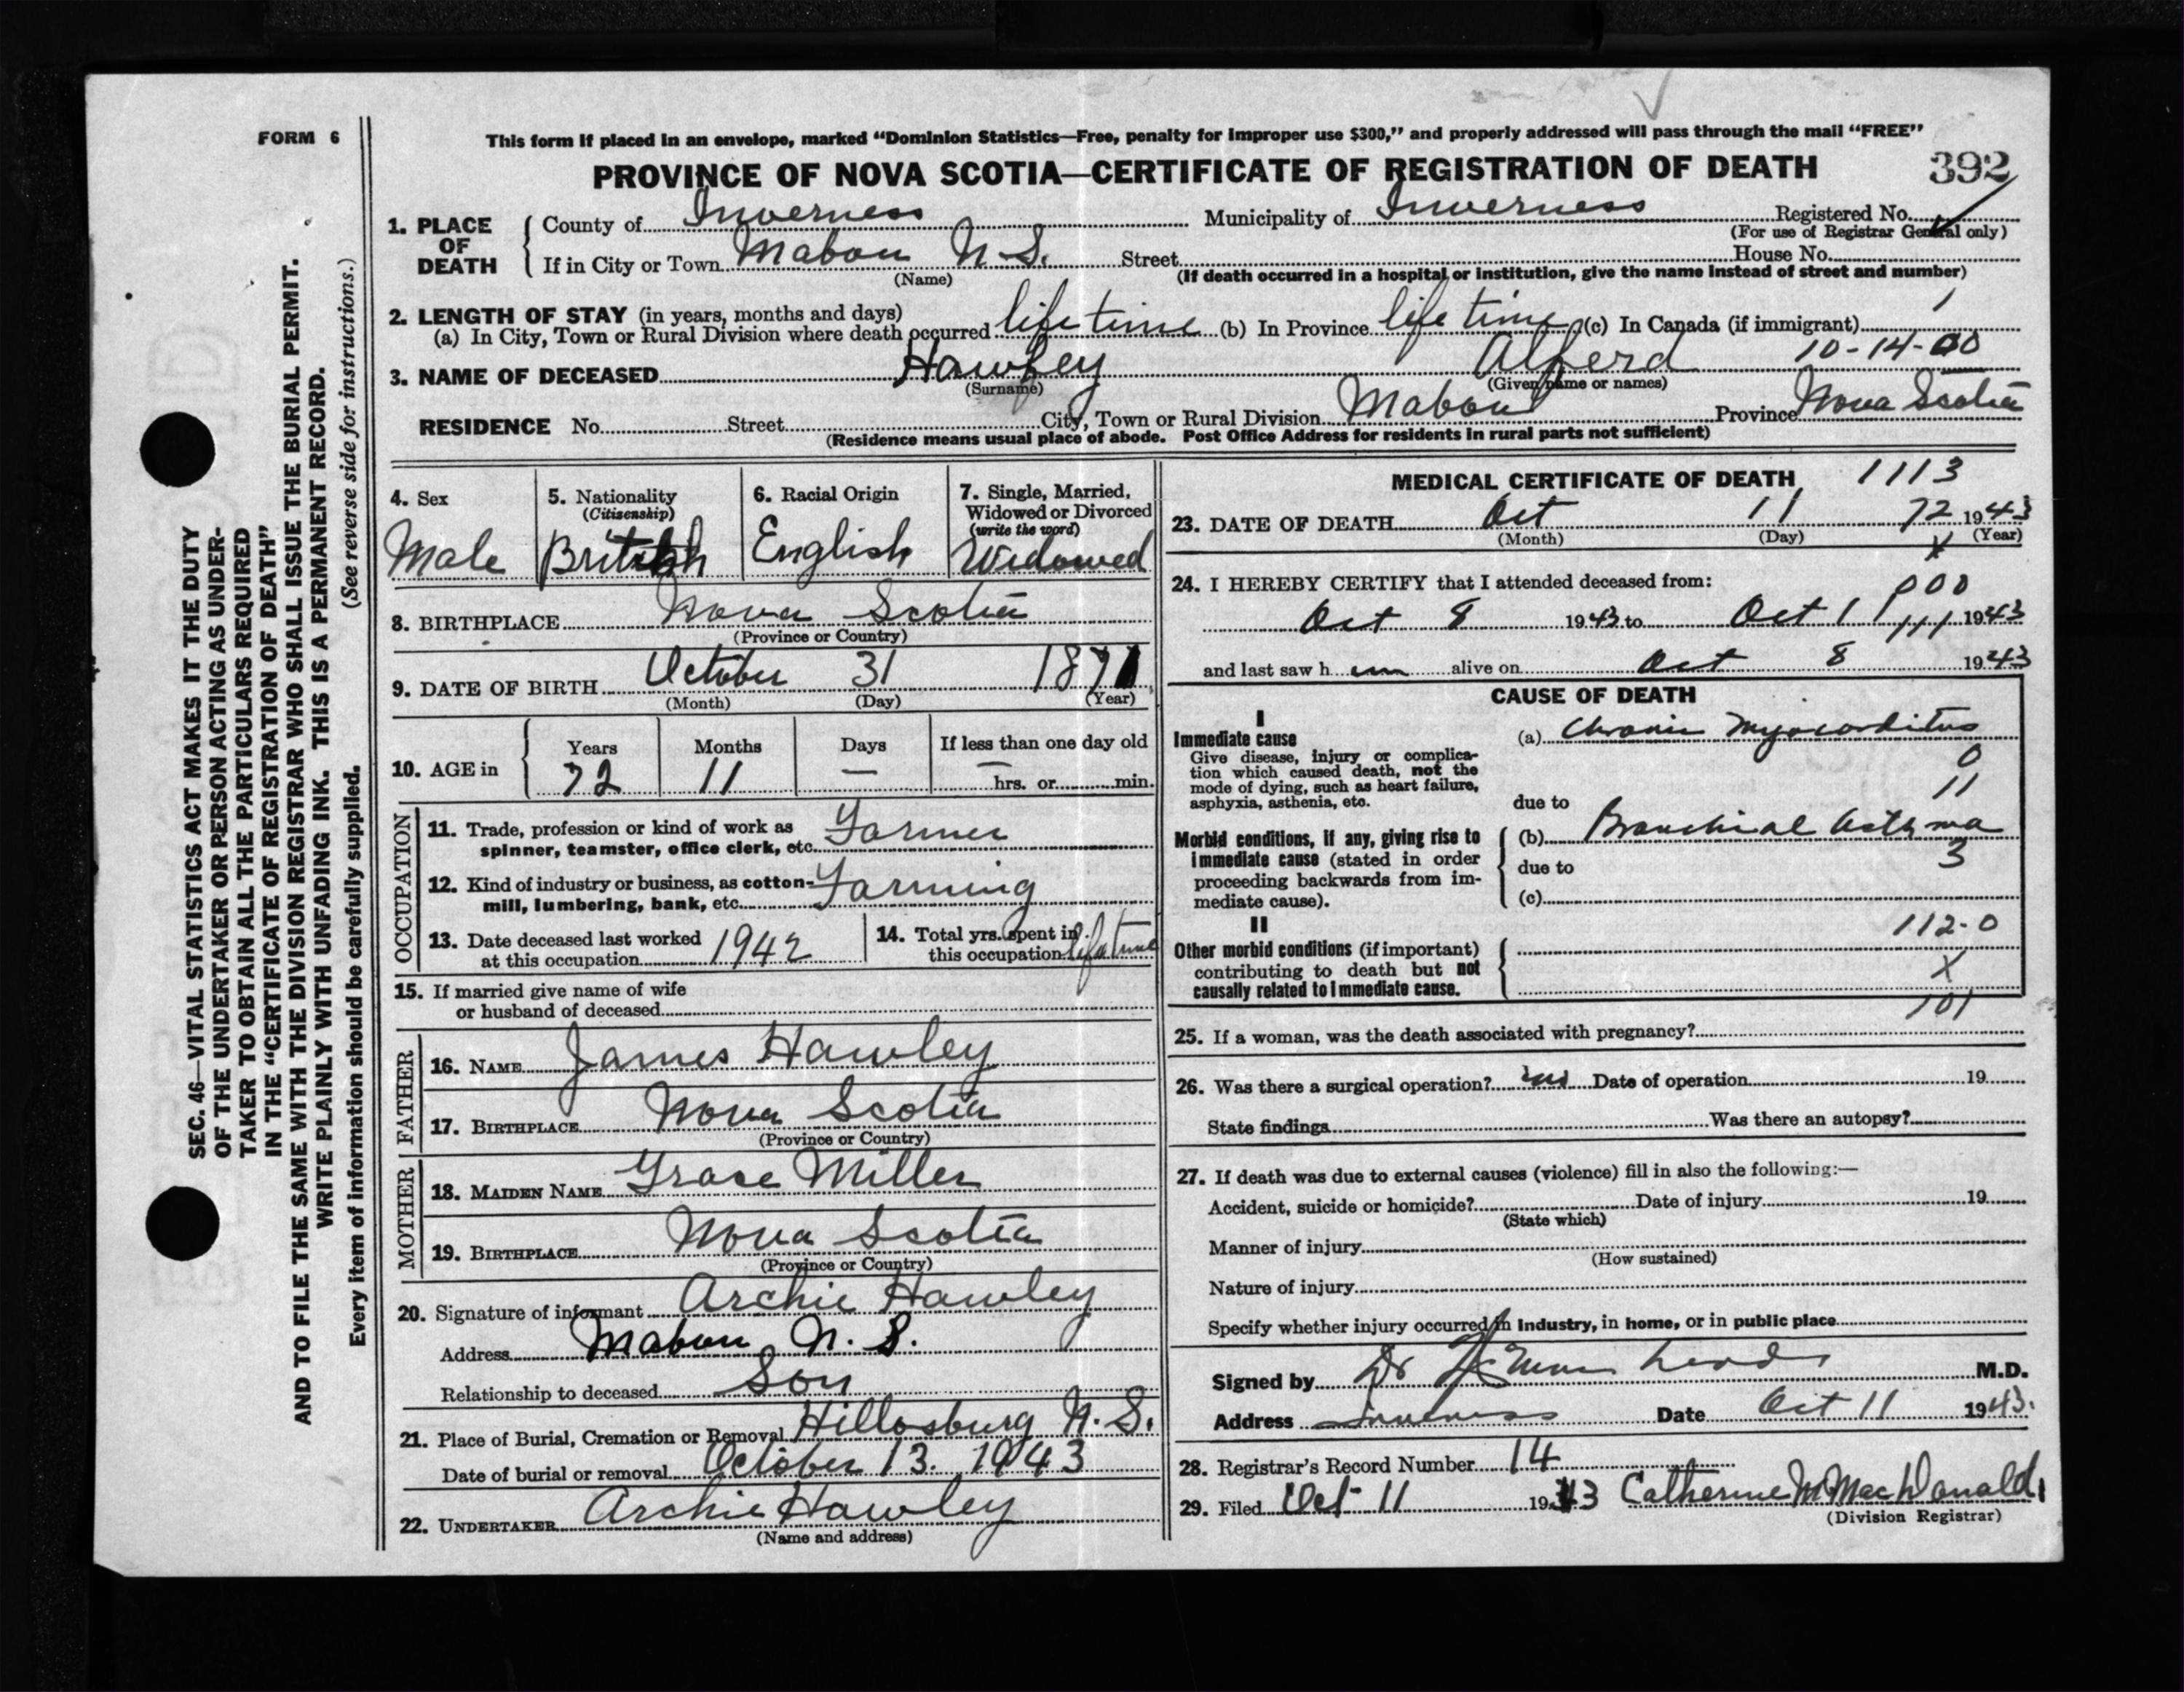 FORM 6
This form if placed in an envelope, marked “Dominion Statistics—Free, penalty for improper use $300,” and properly addressed will pass through the mail “FREE”
PROVINCE OF NOVA SCOTIA—CERTIFICATE OF REGISTRATION OF DEATH 392
1. PLACE OF DEATH
County of Inverness Municipality of Inverness Registered No.
(For use of Registrar General only)
If in City or Town Mabou N.S. Street House No.
(Name) (If death occurred in a hospital or institution, give the name instead of street and number)
2. LENGTH OF STAY (in years, months and days) 1
(a) In City, Town or Rural Division where death occurred life time (b) In Province life time (c) In Canada (if immigrant)
10-14-00
3. NAME OF DECEASED Hawley Alferd
(Surname) (Given name or names)
RESIDENCE No. Street City, Town or Rural Division Mabou Province Nova Scotia
(Residence means usual place of abode. Post Office Address for residents in rural parts not sufficient)
4. Sex
Male
5. Nationality
(Citizenship)
British
6. Racial Origin
English
7. Single, Married, Widowed or Divorced
(write the word)
Widowed
8. BIRTHPLACE Nova Scotia
(Province or Country)
9. DATE OF BIRTH October 31 1871
(Month) (Day) (Year)
10. AGE in
Years Months Days If less than one day old
72 11 — — hrs. or min.
OCCUPATION
11. Trade, profession or kind of work as
spinner, teamster, office clerk, etc. Farmer
12. Kind of industry or business, as cotton-
mill, lumbering, bank, etc. Farming
13. Date deceased last worked
at this occupation 1942
14. Total yrs. spent in
this occupation lifetime
15. If married give name of wife
or husband of deceased
FATHER
16. NAME James Hawley
17. BIRTHPLACE Nova Scotia
(Province or Country)
MOTHER
18. MAIDEN NAME Grace Miller
19. BIRTHPLACE Nova Scotia
(Province or Country)
20. Signature of informant Archie Hawley
Address Mabou N. S.
Relationship to deceased Son
21. Place of Burial, Cremation or Removal Hillosburg N.S.
Date of burial or removal October 13. 1943
22. UNDERTAKER Archie Hawley
(Name and address)
MEDICAL CERTIFICATE OF DEATH 1113
23. DATE OF DEATH Oct 11 72 1943
(Month) (Day) (Year)
X
24. I HEREBY CERTIFY that I attended deceased from:
000
Oct 8 1943 to Oct 11 111 1943
and last saw h im alive on Oct 8 1943
CAUSE OF DEATH
I
Immediate cause (a) Chronic Myocarditus
Give disease, injury or complica-
tion which caused death, not the
mode of dying, such as heart failure,
asphyxia, asthenia, etc.
0
11
due to
Morbid conditions, if any, giving rise to (b) Bronchial Asthma
immediate cause (stated in order
proceeding backwards from im-
mediate cause).
due to 3
(c)
II 112-0
Other morbid conditions (if important)
contributing to death but not
causally related to immediate cause.
X
101
25. If a woman, was the death associated with pregnancy?
26. Was there a surgical operation? Date of operation 19
State findings Was there an autopsy?
27. If death was due to external causes (violence) fill in also the following:—
Accident, suicide or homicide? Date of injury 19
(State which)
Manner of injury
(How sustained)
Nature of injury
Specify whether injury occurred in industry, in home, or in public place
Signed by Dr M.D.
Address Inverness Date Oct 11 1943.
28. Registrar's Record Number 14
29. Filed Oct 11 1943 Catherine M MacDonald
(Division Registrar)
SEC. 46—VITAL STATISTICS ACT MAKES IT THE DUTY
OF THE UNDERTAKER OR PERSON ACTING AS UNDER-
TAKER TO OBTAIN ALL THE PARTICULARS REQUIRED
IN THE “CERTIFICATE OF REGISTRATION OF DEATH”
AND TO FILE THE SAME WITH THE DIVISION REGISTRAR WHO SHALL ISSUE THE BURIAL PERMIT.
WRITE PLAINLY WITH UNFADING INK. THIS IS A PERMANENT RECORD.
(See reverse side for instructions.)
Every item of information should be carefully supplied.